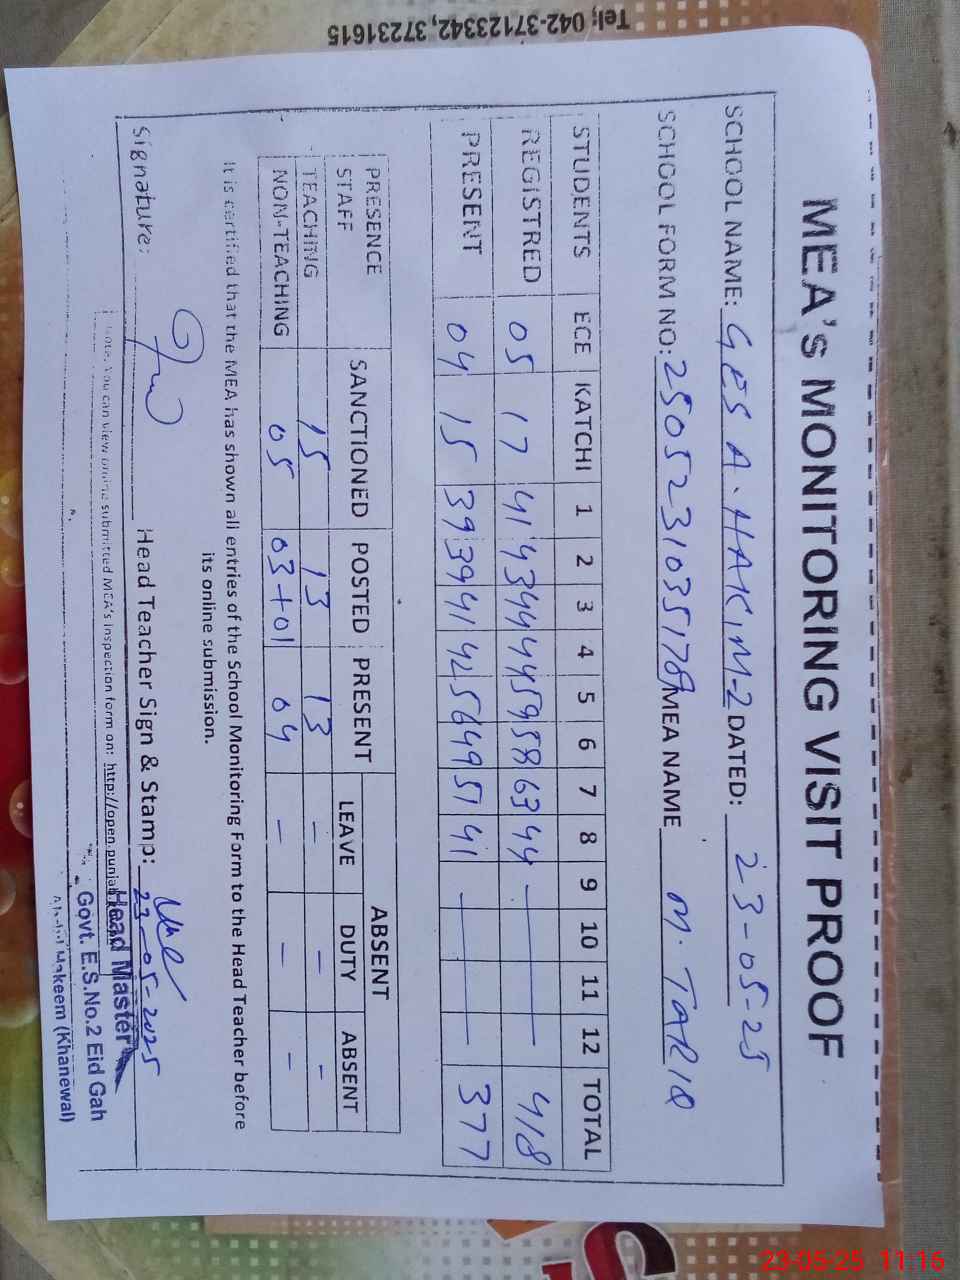 Tel; 042-37123342, 37231615
MEA's MONITORING VISIT PROOF
SCHOOL NAME: GES A. HAKIM-2 DATED: 23-05-25
SCHOOL FORM NO: 25052310351789 MEA NAME M. TARIQ
STUDENTS ECE KATCHI 1 2 3 4 5 6 7 8 9 10 11 12 TOTAL
REGISTRED 05 17 41 43 44 44 59 58 63 44 — 418
PRESENT 04 15 39 39 41 42 56 49 51 41 — 377
PRESENCE STAFF SANCTIONED POSTED PRESENT ABSENT
LEAVE DUTY ABSENT
TEACHING 15 13 13 - - -
NON-TEACHING 05 03+01 04 - - -
It is certified that the MEA has shown all entries of the School Monitoring Form to the Head Teacher before
its online submission.
Signature: Head Teacher Sign & Stamp: 23-05-2025
Note. You can view online submitted MEA's inspection form on: http://open.punjab
Head Master
Govt. E.S.No.2 Eid Gah
Abdul Hakeem (Khanewal)
23-05-25 11:16